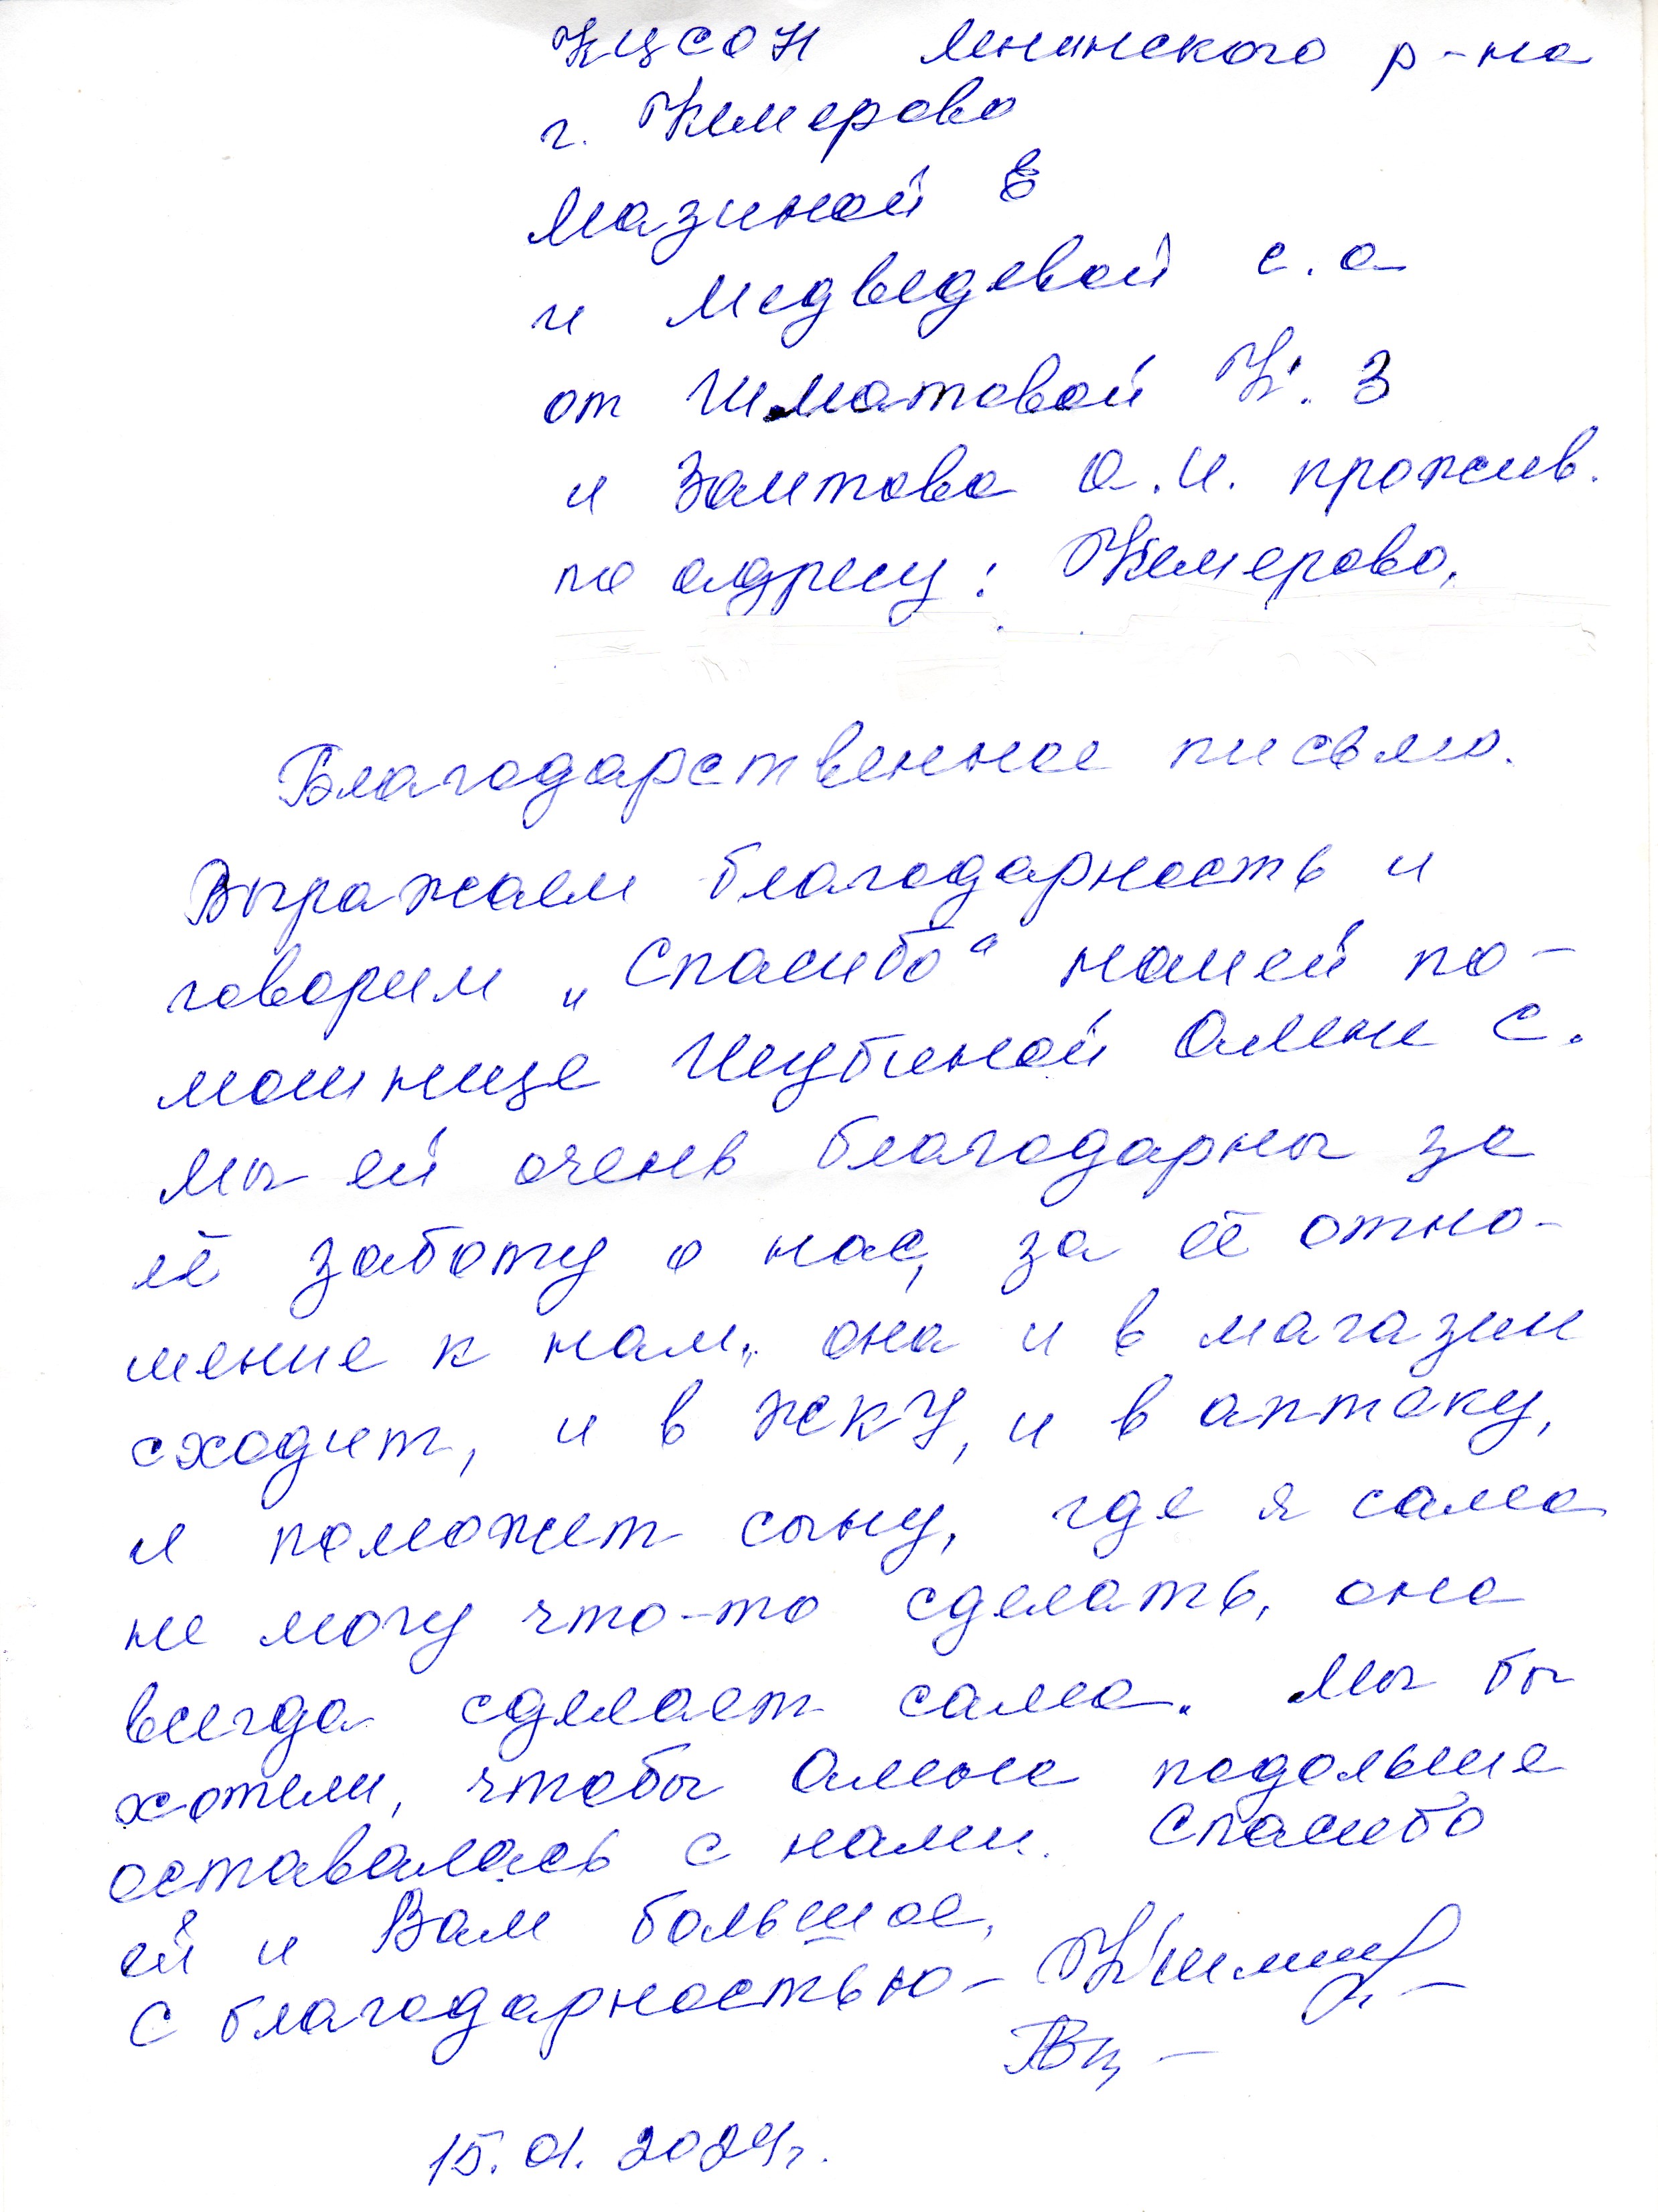 КЦСОН Ленинского р-на
г. Кемерово
Мазиной Е
и Медведевой С.А
от Шматовой К. З
и Заитова О.И. прожив.
по адресу: Кемерово,
Благодарственное письмо.
Выражаем благодарность и
говорим „Спасибо“ нашей по-
мошнице Шубиной Олене С.
Мы ей очень благодарны за
её заботу о нас, за её отно-
шение к нам, она и в магазин
сходит, и в ЖКУ, и в аптеку,
и поможет сыну, где я сама
не могу что-то сделать, она
всегда сделает сама. Мы бы
хотели, чтобы Олене подольше
оставалась с нами. Спасибо
ей и Вам большое,
С благодарностью-
15.01.2024г.